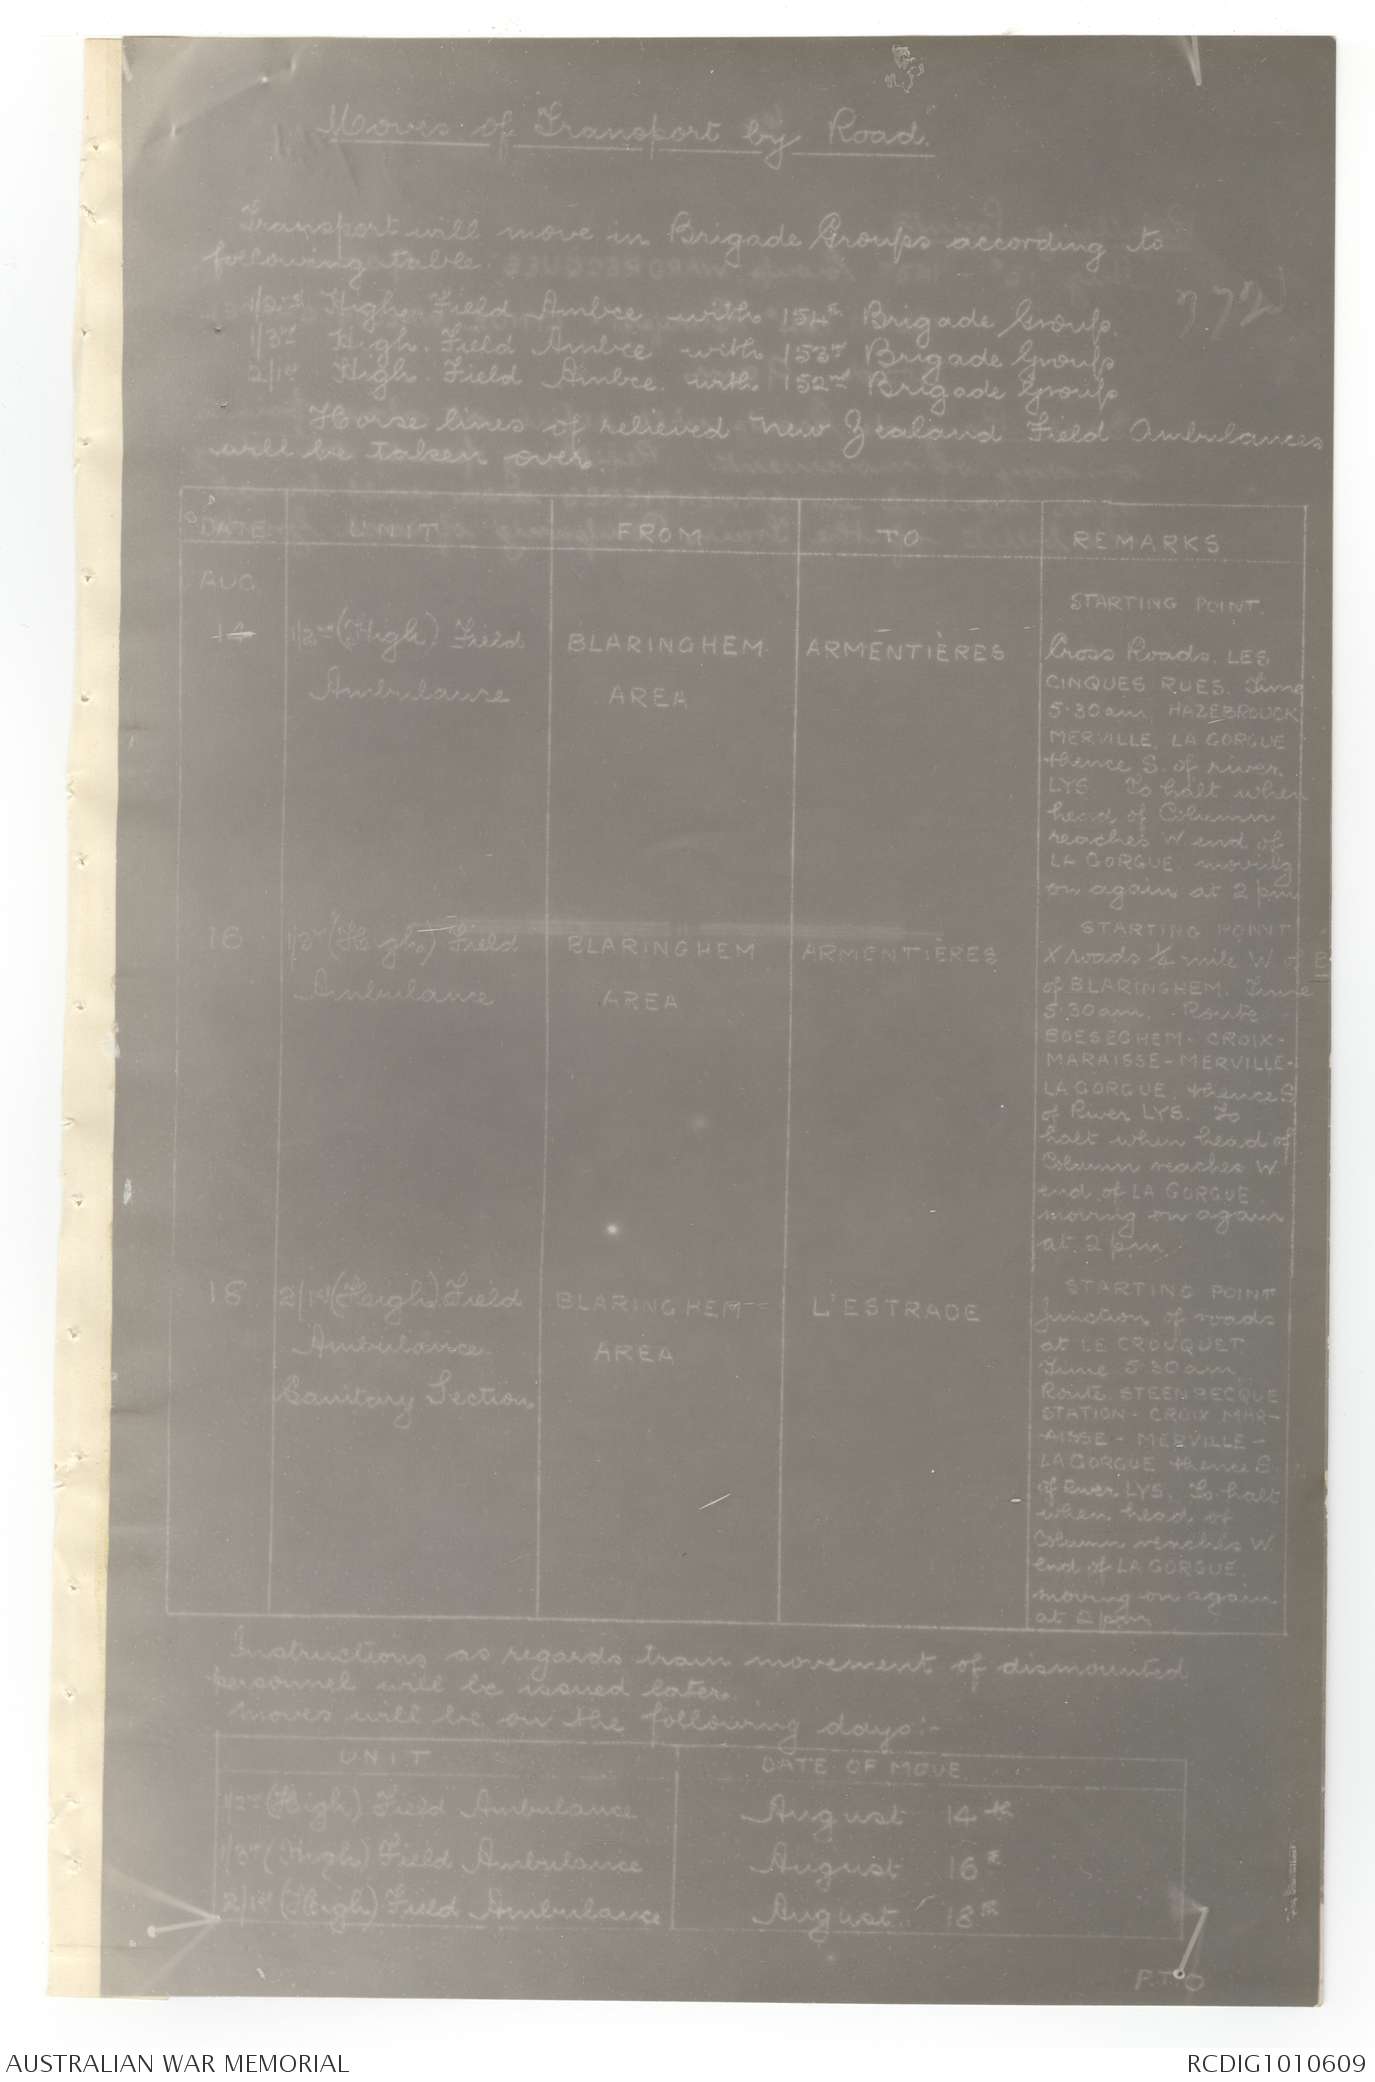 Moves of Transport by Road.
Transport will move in Brigade Groups according to
following table.
1/2nd High. Field Ambce with 154th Brigade Group.
1/3rd High. Field Ambce with 153rd Brigade Group
2/1st High. Field Ambce. with 152nd Brigade Group
Horse lines of relieved New Zealand Field Ambulances
will be taken over.
DATE UNIT FROM TO REMARKS
AUG.
14 1/2nd (High) Field Ambulance BLARINGHEM AREA ARMENTIÈRES
STARTING POINT.
Cross Roads. LES
CINQUES RUES. Time
5.30am. HAZEBROUCK
MERVILLE, LA GORGUE
thence S. of river
LYS. To halt when
head of Column
reaches W end of
LA GORGUE. moving
on again at 2 pm
16 1/3rd (High) Field Ambulance BLARINGHEM AREA ARMENTIÈRES
STARTING POINT
X roads ¼ mile W of E
of BLARINGHEM. Time
5.30am. Route
BOESEGHEM - CROIX -
MARAISSE - MERVILLE -
LA GORGUE. thence S
of River LYS. To
halt when head of
Column reaches W
end of LA GORGUE.
moving on again
at 2 pm.
18 2/1st (High) Field Ambulance Sanitary Section BLARINGHEM AREA L'ESTRADE
STARTING POINT
Junction of roads
at LE CROUQUET
Time 5.30am.
Route. STEENBECQUE
STATION - CROIX MAR-
AISSE - MERVILLE -
LA GORGUE thence S.
of River LYS. To halt
when head of
Column reaches W
end of LA GORGUE.
moving on again
at 2pm
Instructions as regards train movement of dismounted
personnel will be issued later.
Moves will be on the following days:-
UNIT DATE OF MOVE
1/2nd (High) Field Ambulance August 14th
1/3rd (High) Field Ambulance August 16th
2/1st (High) Field Ambulance August 18th
P.T.O
AUSTRALIAN WAR MEMORIAL
RCDIG1010609